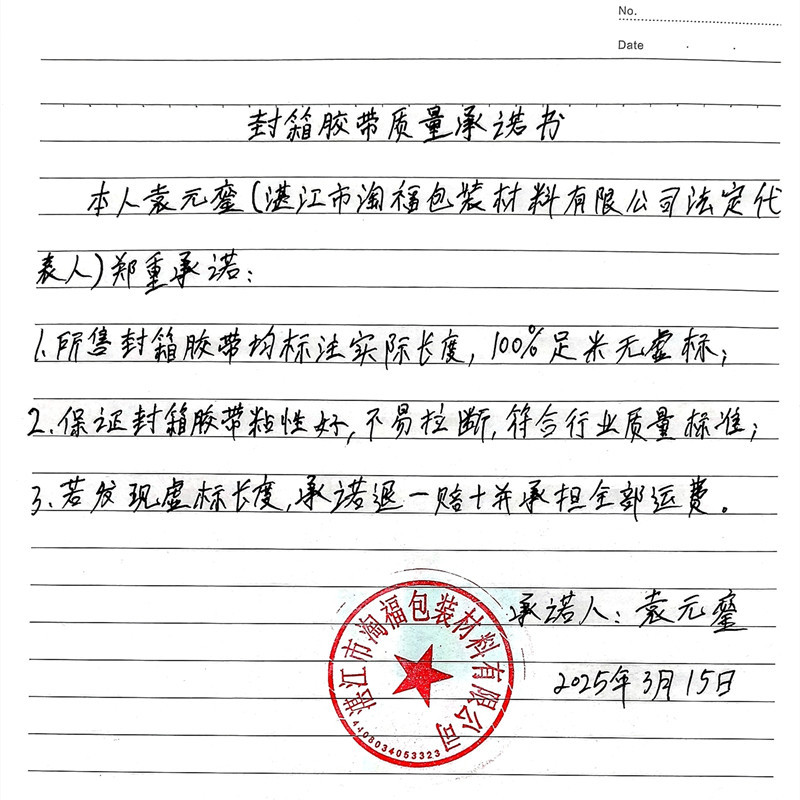 No.
Date
封箱胶带质量承诺书
本人袁元銮(湛江市淘福包装材料有限公司法定代
表人)郑重承诺:
1.所售封箱胶带均标注实际长度,100%足米无虚标;
2.保证封箱胶带粘性好,不易拉断,符合行业质量标准;
3.若发现虚标长度,承诺退一赔十并承担全部运费。
承诺人:袁元銮
2025年3月15日
湛江市淘福包装材料有限公司
4408034053323